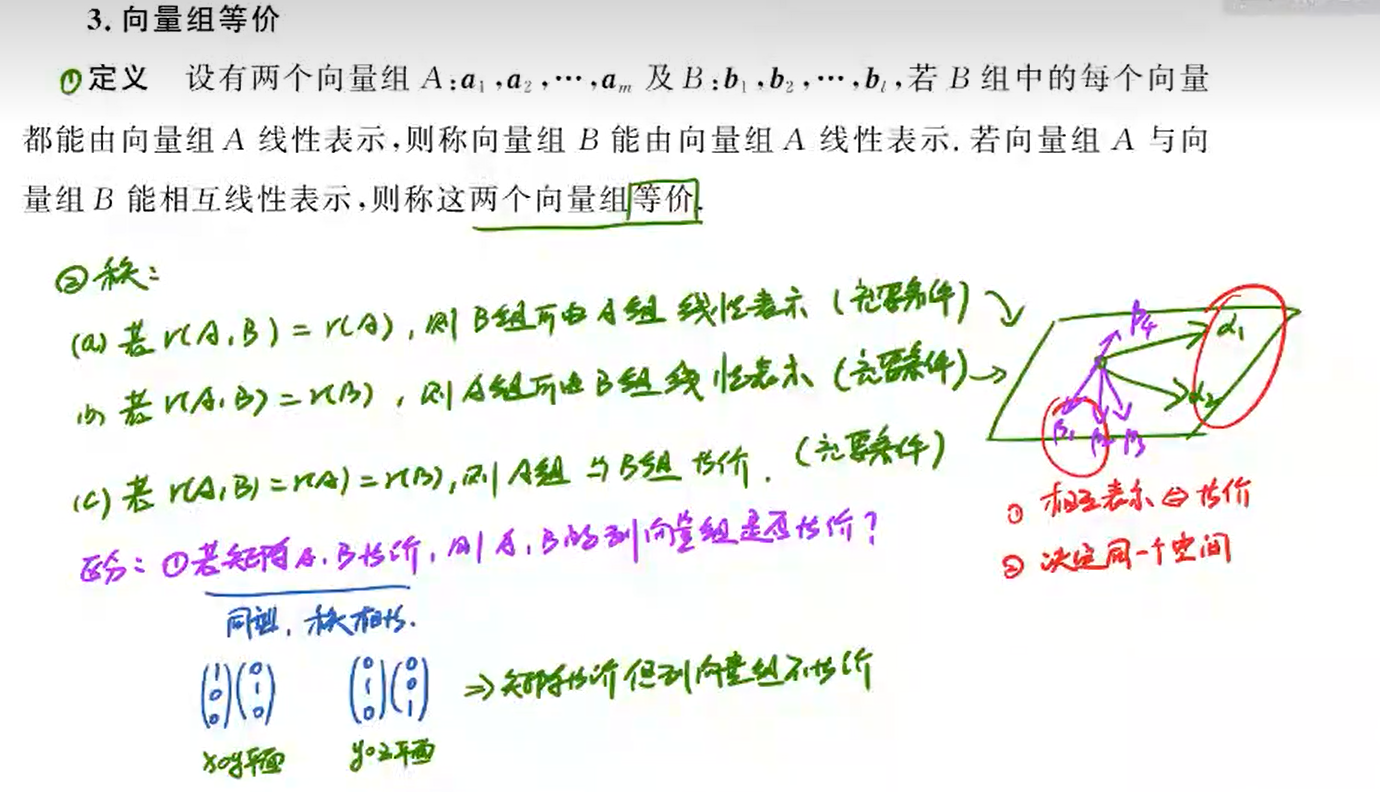 3. 向量组等价
①定义 设有两个向量组 A:a₁,a₂,⋯,aₘ 及 B:b₁,b₂,⋯,bₗ,若 B 组中的每个向量
都能由向量组 A 线性表示,则称向量组 B 能由向量组 A 线性表示. 若向量组 A 与向
量组 B 能相互线性表示,则称这两个向量组等价.
②秩:
(a) 若 r(A,B) = r(A), 则 B组可由A组 线性表示 (充要条件)
(b) 若 r(A,B) = r(B), 则 A组可由B组 线性表示 (充要条件)
(c) 若 r(A,B) = r(A) = r(B), 则 A组与B组 等价. (充要条件)
β₄ α₁
α₂
β₁ β₂ β₃
① 相互表示 ⇔ 等价
② 决定同一个空间
区分: ①若矩阵A,B等价, 则A,B的列向量组是否等价?
同型, 秩相等.
(1 0 0) (0 1 0) (0 1 0) (0 0 1) ⇒ 矩阵等价但列向量组不等价
xoy平面 yoz平面